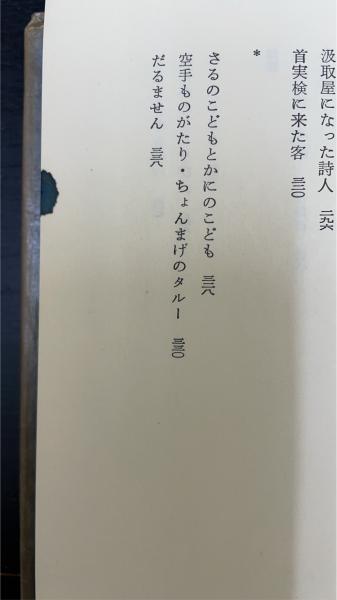 汲取屋になった詩人 二九六
首実検に来た客 三一〇
*
さるのこどもとかにのこども 三二八
空手ものがたり・ちょんまげのタルー 三三〇
だるません 三三八